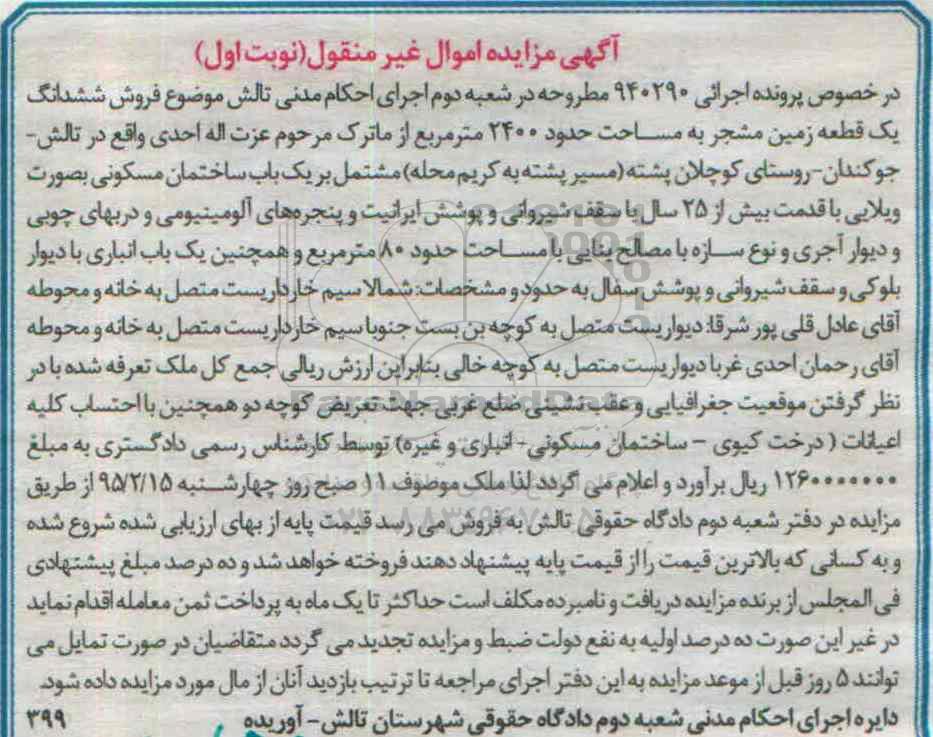 آگهی مزایده اموال غیر منقول(نوبت اول)
در خصوص پرونده اجرائی ۹۴۰۲۹۰ مطروحه در شعبه دوم اجرای احکام مدنی تالش موضوع فروش ششدانگ
یک قطعه زمین مشجر به مساحت حدود ۲۴۰۰ مترمربع از ماترک مرحوم عزت اله احدی واقع در تالش-
جوکندان-روستای کوچلان پشته (مسیر پشته به کریم محله) مشتمل بر یک باب ساختمان مسکونی بصورت
ویلایی با قدمت بیش از ۲۵ سال با سقف شیروانی و پوشش ایرانیت و پنجره‌های آلومینیومی و دربهای چوبی
و دیوار آجری و نوع سازه با مصالح بنایی با مساحت حدود ۸۰ مترمربع و همچنین یک باب انباری با دیوار
بلوکی و سقف شیروانی و پوشش سفال به حدود و مشخصات: شمالا سیم خارداریست متصل به خانه و محوطه
آقای عادل قلی پور شرقا: دیواریست متصل به کوچه بن بست جنوبا سیم خارداریست متصل به خانه و محوطه
آقای رحمان احدی غربا دیواریست متصل به کوچه خالی بنابراین ارزش ریالی جمع کل ملک تعرفه شده با در
نظر گرفتن موقعیت جغرافیایی و عقب نشینی ضلع غربی جهت تعریض کوچه دو همچنین با احتساب کلیه
اعیانات ( درخت کیوی - ساختمان مسکونی- انباری و غیره) توسط کارشناس رسمی دادگستری به مبلغ
۱۲۶۰۰۰۰۰۰۰ ریال برآورد و اعلام می گردد لذا ملک موصوف ۱۱ صبح روز چهارشنبه ۹۵/۲/۱۵ از طریق
مزایده در دفتر شعبه دوم دادگاه حقوقی تالش به فروش می رسد قیمت پایه از بهای ارزیابی شده شروع شده
و به کسانی که بالاترین قیمت را از قیمت پایه پیشنهاد دهند فروخته خواهد شد و ده درصد مبلغ پیشنهادی
فی المجلس از برنده مزایده دریافت و نامبرده مکلف است حداکثر تا یک ماه به پرداخت ثمن معامله اقدام نماید
در غیر این صورت ده درصد اولیه به نفع دولت ضبط و مزایده تجدید می گردد متقاضیان در صورت تمایل می
توانند ۵ روز قبل از موعد مزایده به این دفتر اجرای مراجعه تا ترتیب بازدید آنان از مال مورد مزایده داده شود.
دایره اجرای احکام مدنی شعبه دوم دادگاه حقوقی شهرستان تالش- آوریده ۳۹۹